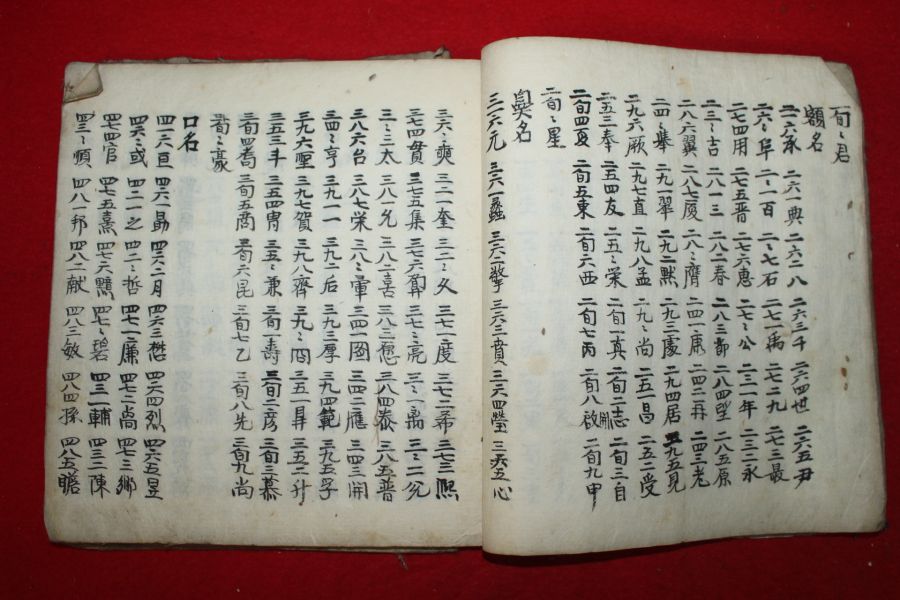 二旬〻君
額名
二六永 二六一典 二六二八 二六三千 二六四世 二六五尹
二六〻阜 二〻一百 二〻七石 二七一禹 二七二九 二七三最
二七四用 二七五晋 二七六惠 二七〻公 二三一年 二三二永
二三〻吉 二八一三 二八二春 二八三部 二八四望 二八五原
二八六翼 二八七厦 二八〻膺 二四一康 二四二再 二四三老
二四〻集 二九一翠 二九二默 二九三處 二九四居 二九五見
二九六厥 二九七直 二九八孟 二九〻尚 二五一昌 二五二受
二五三奉 二五四友 二五〻荣 二旬一真 二旬二志 二旬三自
二旬四夏 二旬五東 二旬六西 二旬七丙 二旬八啟 二旬九甲
二旬〻星
鼻名
三六元 三六一蠡 三六二擎 三六三賁 三六四瑩 三六五心
三六〻奭 三二一奎 三二〻文 三七一度 三七二希 三七三熙
三七四貫 三七五集 三七六算 三七〻亮 三〻一禹 三〻二允
三〻三太 三八一允 三八二喜 三八三憩 三八四泰 三八五普
三八六台 三八七栄 三八〻軍 三四一国 三四二應 三四三開
三四〻亨 三九一一 三九二后 三九三厚 三九四範 三九五孚
三九六聖 三九七賀 三九八齊 三九〻冏 三五一昇 三五二升
三五三斗 三五四胄 三五〻兼 三旬一壽 三旬二彦 三旬三慕
三旬四蔿 三旬五商 三旬六昆 三旬七乙 三旬八先 三旬九尚
三旬〻豪
口名
四一六亘 四六一勗 四六二月 四六三懋 四六四烈 四六五昱
四六〻或 四二一之 四二〻哲 四七一廉 四七二尚 四七三鄉
四七四官 四七五熹 四七六顯 四七〻碧 四三一輔 四三二陳
四三〻順 四八一邦 四八二献 四八三敏 四八四孫 四八五瞻